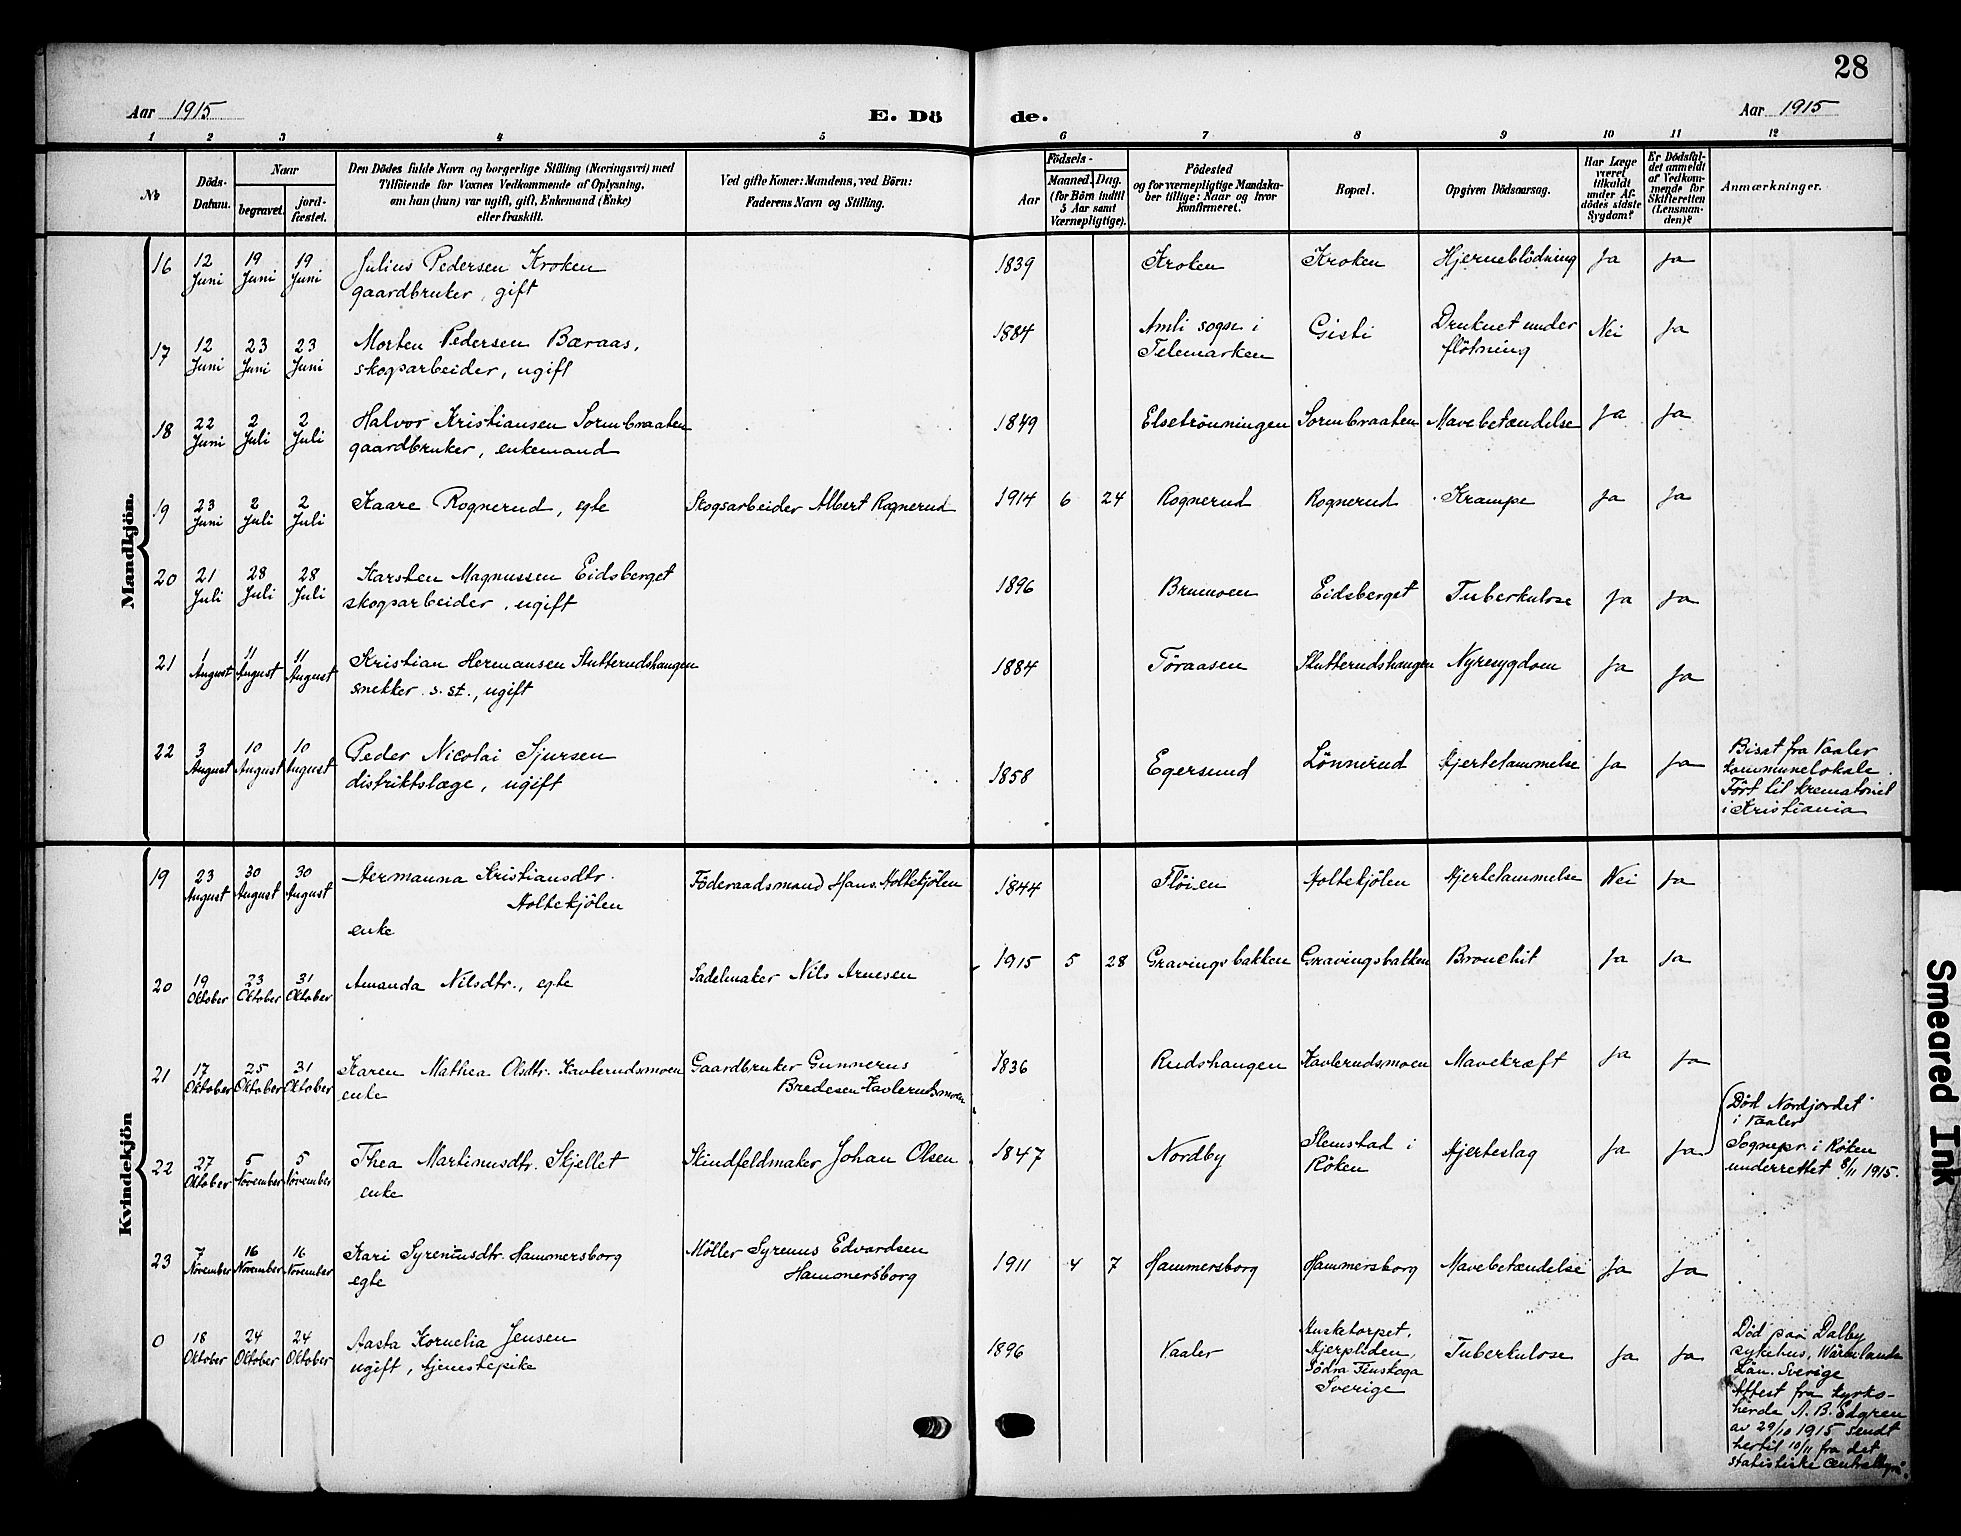 28
Aar 1915
E. Dö
de.
Aar 1915
1 2 3 4 5 6 7 8 9 10 11 12
No
Döds-
Datum.
Naar
begravet.
jord-
fæstet.
Den Dödes fulde Navn og borgerlige Stilling (Næringsvei) med
Tilföiende for Voxnes Vedkommende af Oplysning,
om han (hun) var ugift, gift, Enkemand (Enke)
eller fraskilt.
Ved gifte Koner: Mandens, ved Börn:
Faderens Navn og Stilling.
Födsels-
Aar
Maaned. Dag.
(for Börn indtil
5 Aar samt
Værnepligtige).
Födested
og for værnepligtige Mandska-
ber tillige: Naar og hvor
konfirmeret.
Bopæl.
Opgiven Dödsaarsag.
Har Læge
været
tilkaldt
under Af-
dödes sidste
Sygdom?
Er Dödsfal-
det anmeldt
af Vedkom-
mende for
Skifteretten
(Lensman-
den)?
Anmærkninger.
Mandkjön.
16 12 Juni 19 Juni 19 Juni Julius Pedersen Kroken 1839 Kroken Kroken Hjerneblödning Ja Ja
gaardbruker, gift
17 12 Juni 23 Juni 23 Juni Morten Pedersen Bæraas, 1884 Amli sogn i Gisti Druknet under Nei Ja
skogsarbeider, ugift Telemarken flötning
18 22 Juni 2 Juli 2 Juli Halvor Kristiansen Sormbraaten 1849 Elsetrönningen Sormbraaten Mavebetændelse Ja Ja
gaardbruker, enkemand
19 23 Juni 2 Juli 2 Juli Kaare Rognerud, egte Skogsarbeider Albert Rognerud 1914 6 24 Rognerud Rognerud Krampe Ja Ja
20 21 Juli 28 Juli 28 Juli Karsten Magnussen Eidsberget 1896 Brumoen Eidsberget Tuberkulose Ja Ja
skogsarbeider, ugift
21 1 August 11 August 11 August Kristian Hermansen Slutterudshaugen 1884 Töraasen Slutterudshaugen Nyresygdom Ja Ja
snekker s. st., ugift
22 3 August 10 August 10 August Peder Nicolai Sjursen 1858 Egersund Lönnerud Hjertelammelse Ja Ja Bisat fra Vaaler
distriktslæge, ugift kommunelokale.
Fört til krematoriet
i Kristiania
Kvindekjön
19 23 August 30 August 30 August Hermanna Kristiansdtr. Föderaadsmand Hans Holtekjölen 1844 Flöien Holtekjölen Hjertelammelse Nei Ja
Holtekjölen
enke
20 19 Oktober 23 Oktober 31 Oktober Amanda Nilsdtr., egte Sadelmaker Nils Arnesen 1915 5 28 Gravingsbakken Gravingsbakken Bronchit Ja Ja
21 17 Oktober 25 Oktober 31 Oktober Karen Mathea Olsdtr. Kavlerudsmoen Gaardbruker Gunnerus 1836 Rudshaugen Kavlerudsmoen Mavekræft Ja Ja
enke Bredesen Kavlerudsmoen
22 27 Oktober 5 November 5 November Thea Martinusdtr. Skjellet Skindfeldmaker Johan Olsen 1847 Nordby Slemstad i Hjerteslag Ja Ja Död Nordjordet
enke Röken i Vaaler
Sognepr. i Röken
underrettet 8/11 1915.
23 7 November 16 November 16 November Kari Syreniusdtr. Hammersborg Möller Syrenus Edvardsen 1911 4 7 Hammersborg Hammersborg Mavebetændelse Ja Ja
egte Hammersborg
0 18 Oktober 24 Oktober 24 Oktober Aasta Kornelia Jensen 1896 Vaaler Husketorpet, Tuberkulose Ja Ja Död paa Dalby
ugift, tjenestepike Hjerpliden, sykehus, Wärmlands
Södra Finskoga Län. Sverige
Sverige Attest fra kyrko-
herde A. B. Edgren
av 29/10 1915 sendt
hertil 10/11 fra det
statistiske centralbyrå.
Smeared Ink